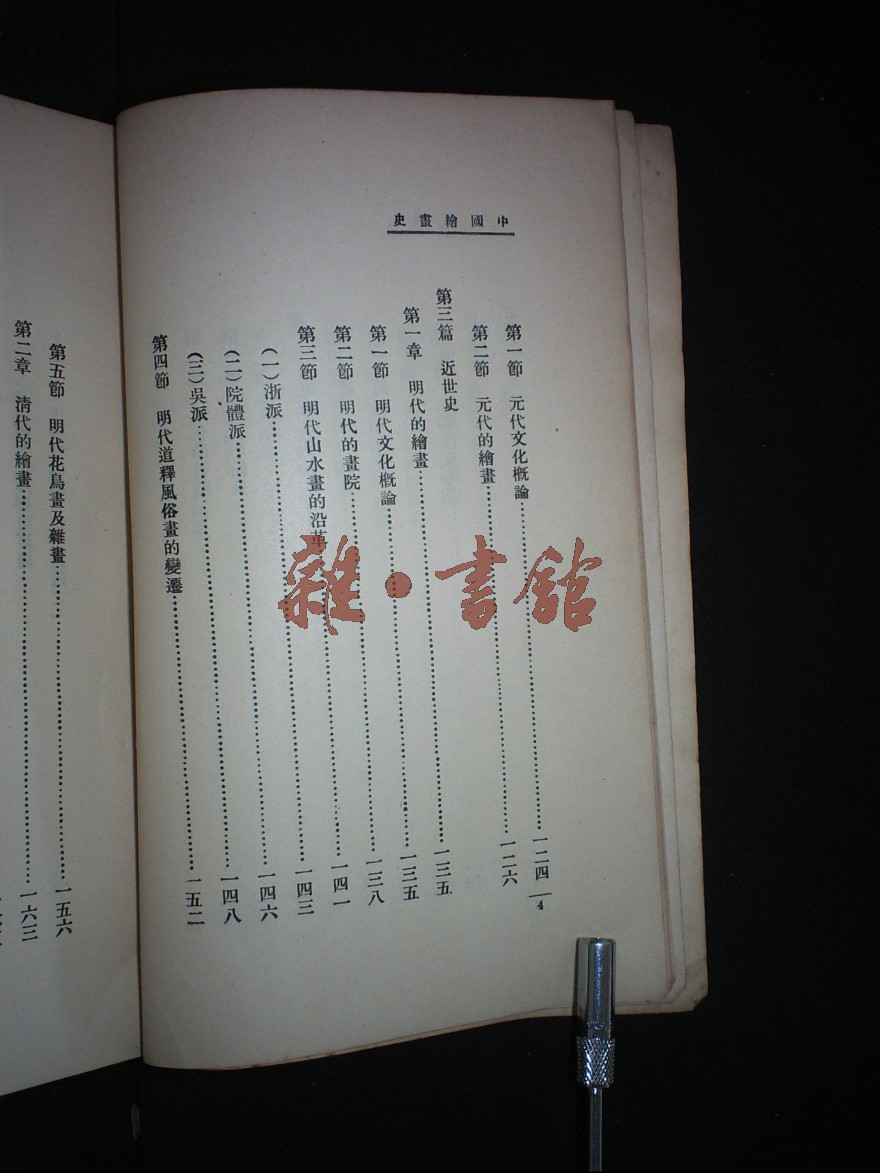 中國繪畫史
第一節 元代文化概論……一二四
4
第二節 元代的繪畫……一二六
第三篇 近世史
第一章 明代的繪畫……一三五
第一節 明代文化概論……一三五
第二節 明代的畫院……一三八
第三節 明代山水畫的沿革……一四一
(一)浙派……一四三
(二)院體派……一四六
(三)吳派……一四八
第四節 明代道釋風俗畫的變遷……一五二
第五節 明代花鳥畫及雜畫……一五六
第二章 淸代的繪畫……一六三
雜·書館